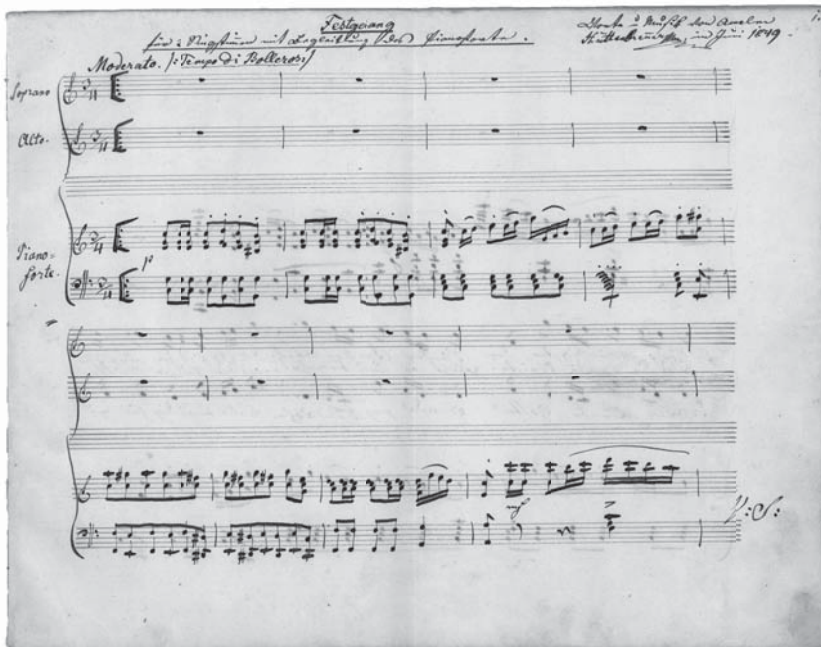 1.
Festgesang
für 2 Singstimmen mit Begleitung des Pianoforte.
Worte u Musik von Anselm
Hüttenbrenner, im Juni 1849.
Moderato. /: Tempo di Bolleros :/
Soprano
Alto.
Piano-
forte.
p
V: S: